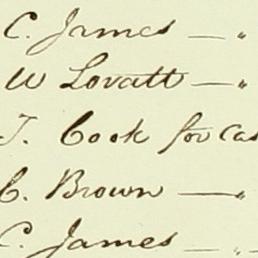 C. James — "
W Lovatt — "
T. Cook for Cas
C. Brown — "
C. James — "